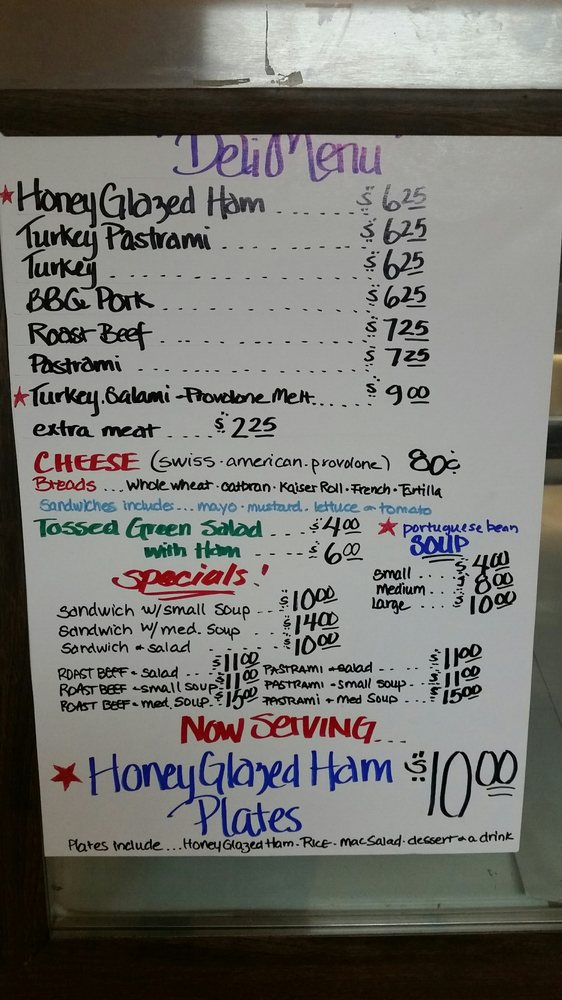 "Deli Menu"
Honey Glazed Ham ....... $ 6.25
Turkey Pastrami ....... $ 6.25
Turkey ............ $ 6.25
BBQ Pork ......... $ 6.25
Roast Beef ......... $ 7.25
Pastrami ......... $ 7.25
Turkey.Salami-Provolone Melt..... $ 9.00
extra meat .... $ 2.25
CHEESE (swiss.american.provolone) 80¢
Breads ... whole wheat.oatbran.Kaiser Roll.French.Turtilla
Sandwiches includes... mayo.mustard.lettuce & tomato
Tossed Green Salad .... $4.00
with Ham .... $ 6.00
portuguese bean
SOUP
small .... $ 4.00
medium .... $ 8.00
large .... $ 10.00
Specials!
Sandwich w/small soup .. $10.00
Sandwich w/med. soup ... $14.00
Sandwich & salad ..... $10.00
ROAST BEEF & salad ..... $11.00
ROAST BEEF & small soup.. $11.00
ROAST BEEF & med. soup.. $15.00
PASTRAMI & salad ..... $11.00
PASTRAMI & small soup .. $11.00
PASTRAMI & med soup ... $15.00
NOW SERVING...
Honey Glazed Ham $10.00
Plates
Plates include ... Honey Glazed Ham.RICE.mac salad.dessert & a drink